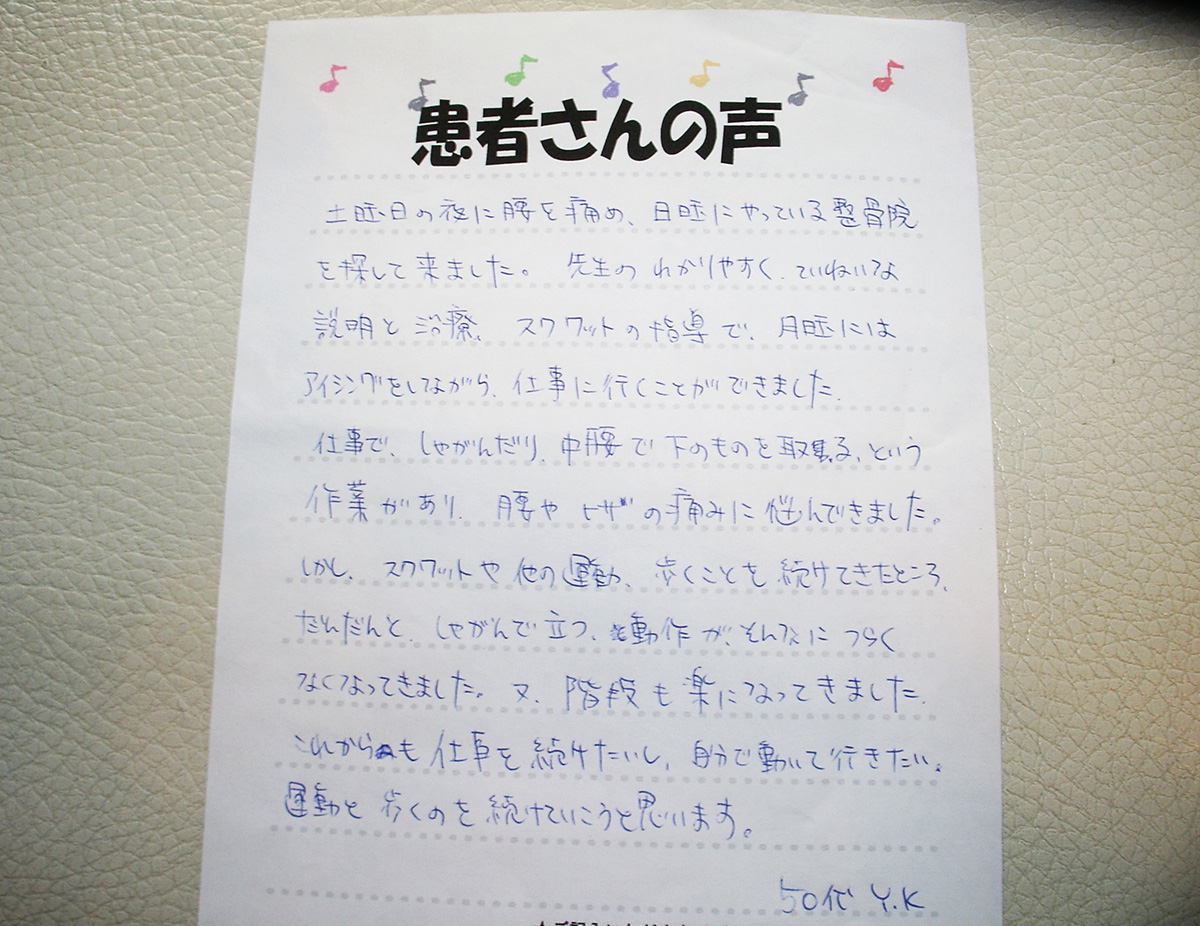 患者さんの声
土曜日の夜に腰を痛め、日曜にやっている整骨院
を探して来ました。先生のわかりやすく、ていねいな
説明と治療、スクワットの指導で、月曜には
アイシングをしながら、仕事に行くことができました。
仕事で、しゃがんだり、中腰で下のものを取る、という
作業があり、腰やヒザの痛みに悩んできました。
しかし、スクワットや他の運動、歩くことを続けてきたところ、
だんだんと、しゃがんで立つ、動作が、そんなにつらく
なくなってきました。又、階段も楽になってきました。
これからも仕事を続けたいし、自分で動いて行きたい。
運動と歩くのを続けていこうと思います。
50代 Y.K